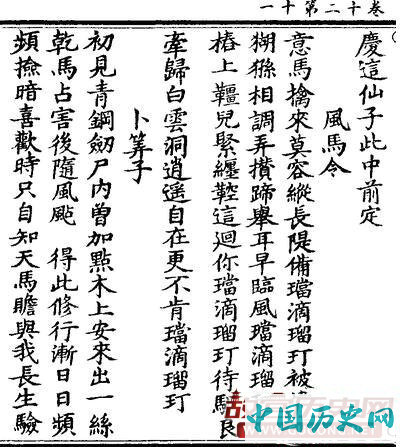 卷十二第十一
慶這仙子此中前定
風馬令
意馬擒來莫容縱長隄備璫滴瑠玎被
猢猻相調弄攢蹄舉耳早臨風璫滴瑠
樁上韁兒緊纏鞚這迴你璫滴瑠玎待
牽歸白雲洞逍遥自在更不肯璫滴瑠玎
卜筭子
初見青鋼劒尸內曽加點木上安來出一絲
乾馬占害後隨風颭　得此修行漸日日頻
頻撿暗喜歡時只自知天馬瞻與我長生驗
中国历史网